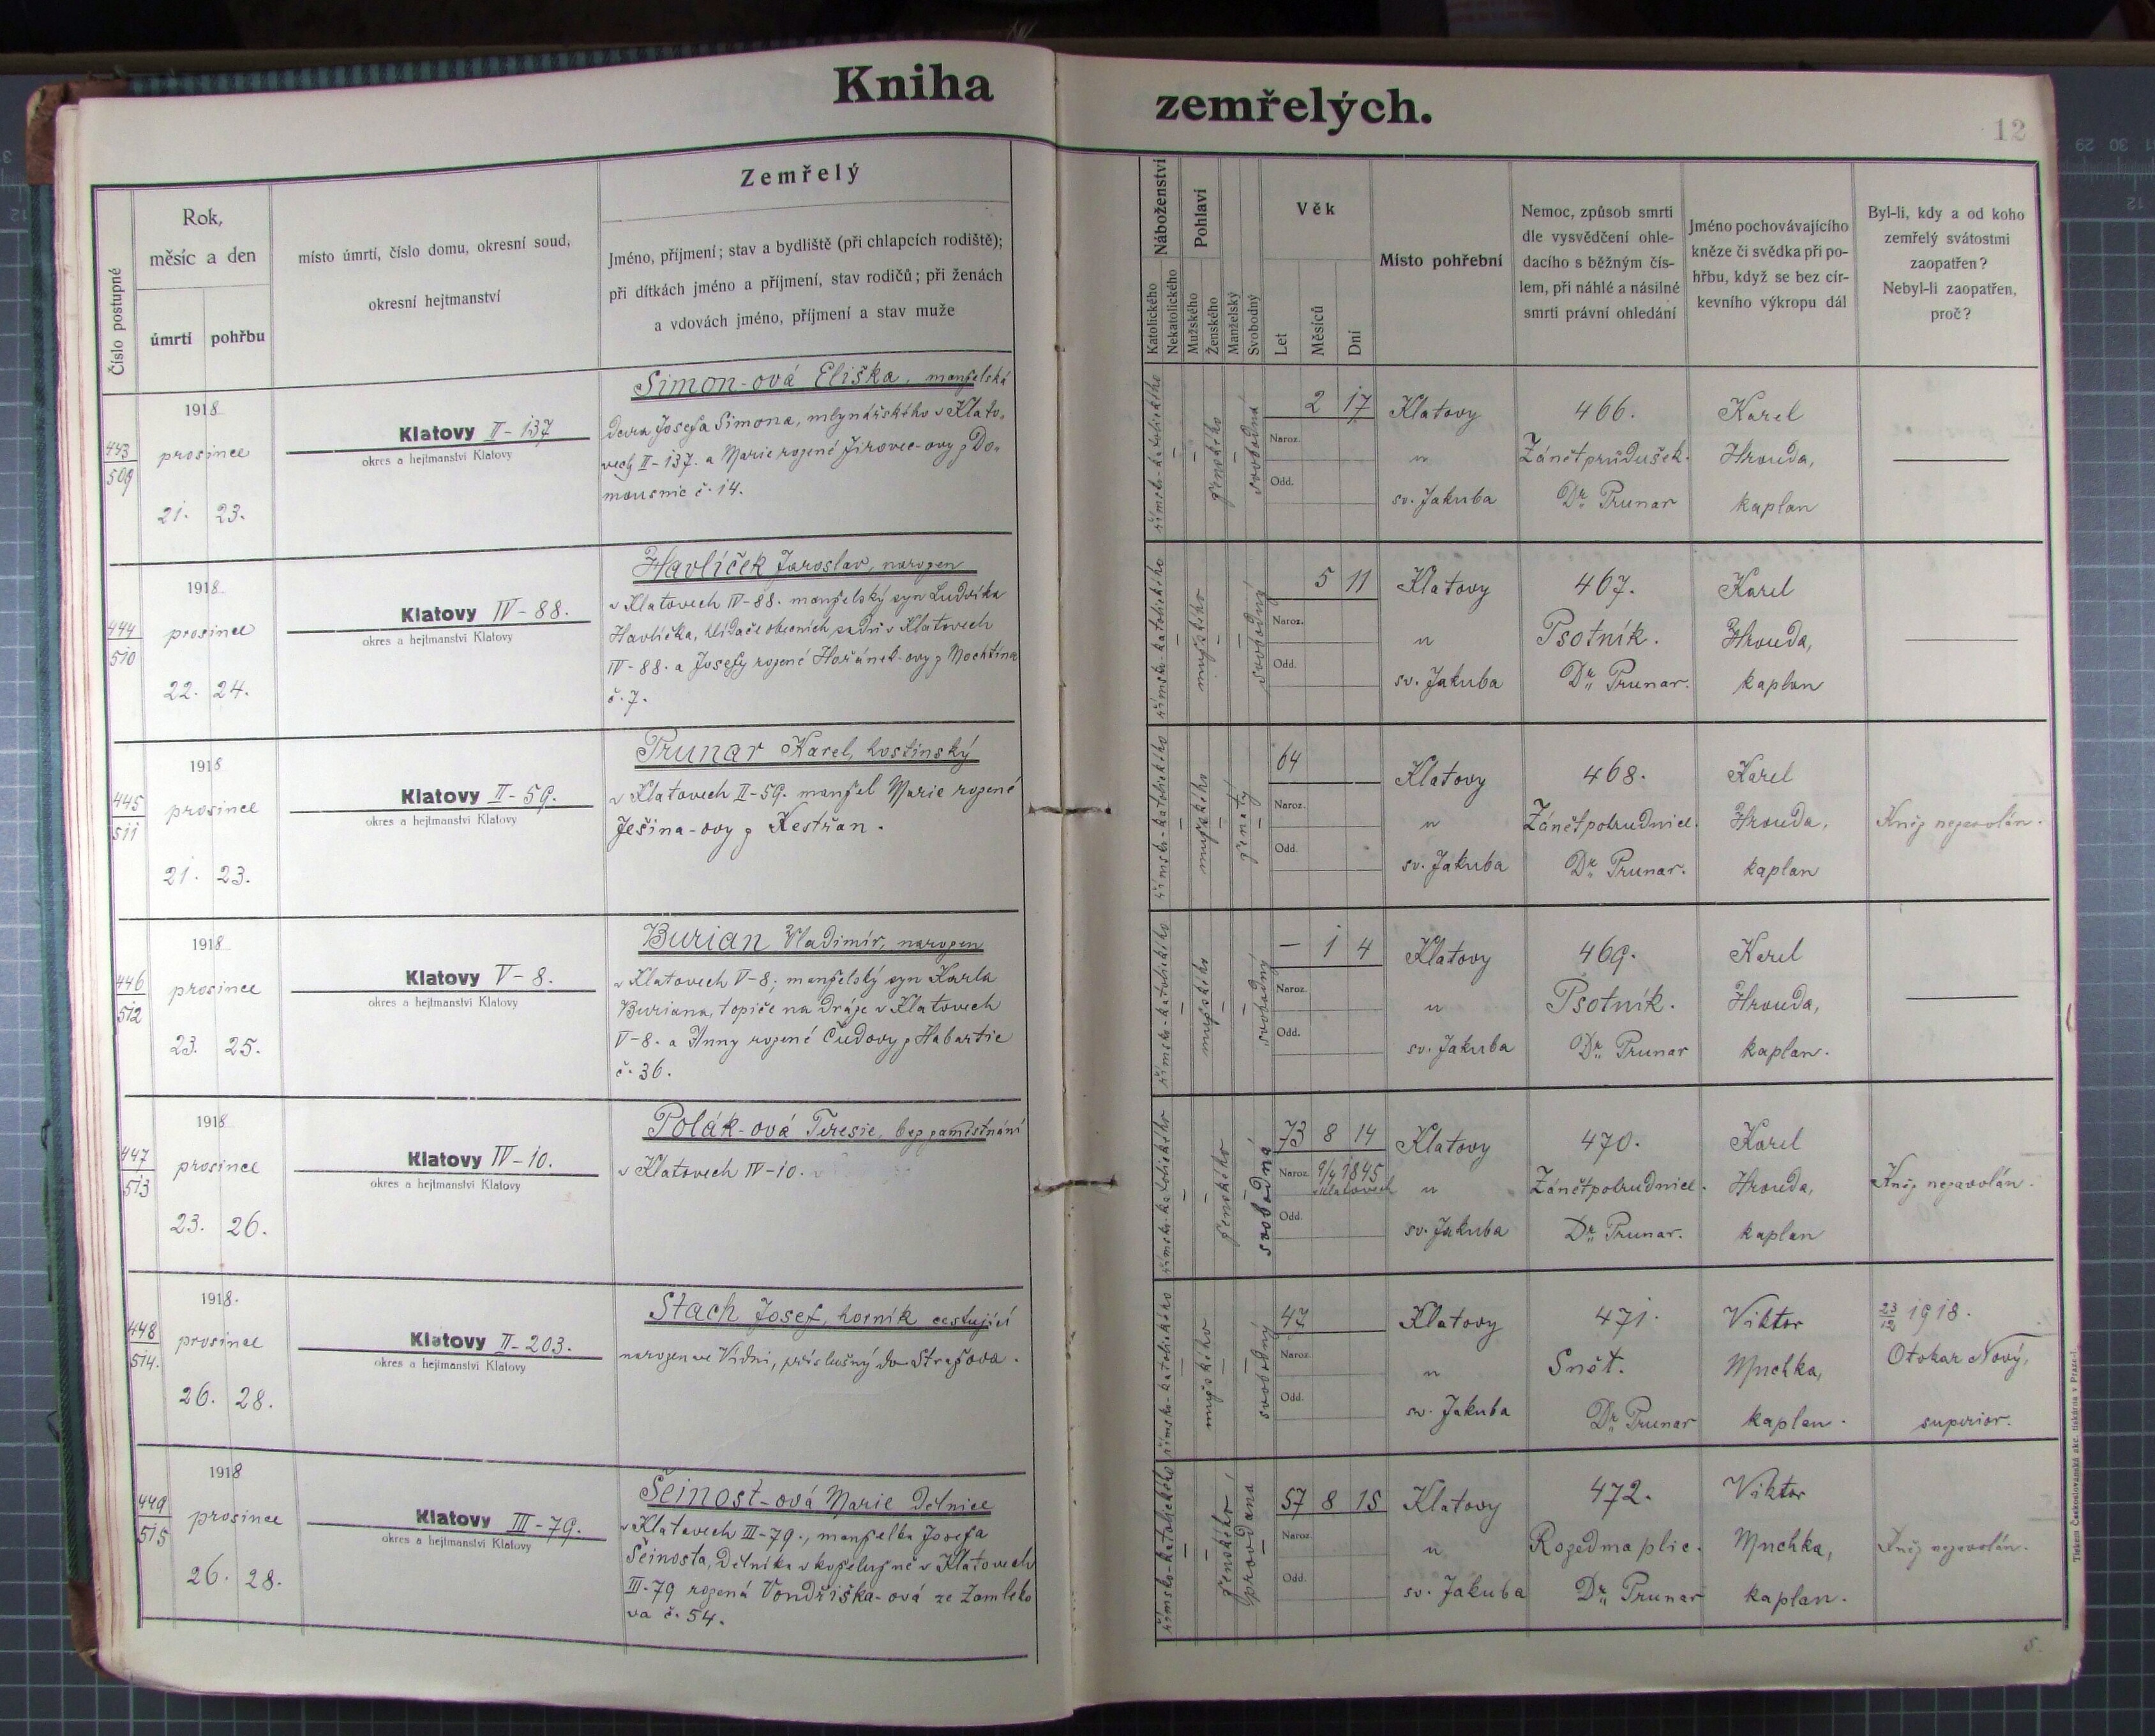 Kniha zemřelých.
12
Číslo postupné
Rok,
měsíc a den
úmrtí pohřbu
místo úmrtí, číslo domu, okresní soud,
okresní hejtmanství
Zemřelý
Jméno, příjmení; stav a bydliště (při chlapcích rodiště);
při dítkách jméno a příjmení, stav rodičů; při ženách
a vdovách jméno, příjmení a stav muže
Náboženství
Katolického
Nekatolického
Pohlaví
Mužského
Ženského
Manželský
Svobodný
Věk
Let
Měsíců
Dní
Místo pohřební
Nemoc, způsob smrti
dle vysvědčení ohle-
dacího s běžným čís-
lem, při náhlé a násilné
smrti právní ohledání
Jméno pochovávajícího
kněze či svědka při po-
hřbu, když se bez cír-
kevního výkropu dál
Byl-li, kdy a od koho
zemřelý svátostmi
zaopatřen?
Nebyl-li zaopatřen,
proč?
443
509
1918
prosince
21. 23.
Klatovy II-137
okres a hejtmanství Klatovy
Simon-ová Eliška, manželská
dcera Josefa Simona, mlynářského v Klato-
vech II-137. a Marie rozené Jirovec-ovy z Do-
mousnic č. 14.
římsko-katolického
ženského
svobodná
2 17
Naroz.
Odd.
Klatovy
u
sv. Jakuba
466.
Zánět průdušek.
Dr. Prunar
Karel
Hrouda,
kaplan
444
510
1918
prosince
22. 24.
Klatovy IV-88.
okres a hejtmanství Klatovy
Havlíček Jaroslav, narozen
v Klatovech IV-88. manželský syn Ludvíka
Havlíčka, hlídače obecních sadů v Klatovech
IV-88. a Josefy rozené Hořánek-ovy z Mochtína
č. 7.
římsko-katolického
mužského
svobodný
5 11
Naroz.
Odd.
Klatovy
u
sv. Jakuba
467.
Psotník.
Dr. Prunar.
Karel
Hrouda,
kaplan
445
511
1918
prosince
21. 23.
Klatovy II-59.
okres a hejtmanství Klatovy
Prunar Karel, hostinský
v Klatovech II-59. manžel Marie rozené
Ješina-ovy z Kestřan.
římsko-katolického
mužského
ženatý
64
Naroz.
Odd.
Klatovy
u
sv. Jakuba
468.
Zánět pohrudnice.
Dr. Prunar.
Karel
Hrouda,
kaplan
Kněz nezavolán.
446
512
1918
prosince
23. 25.
Klatovy V-8.
okres a hejtmanství Klatovy
Burian Vladimír, narozen
v Klatovech V-8; manželský syn Karla
Buriana, topiče na dráze v Klatovech
V-8. a Anny rozené Čudovy z Habartic
č. 36.
římsko-katolického
mužského
svobodný
— 1 4
Naroz.
Odd.
Klatovy
u
sv. Jakuba
469.
Psotník.
Dr. Prunar
Karel
Hrouda,
kaplan.
447
513
1918
prosince
23. 26.
Klatovy IV-10.
okres a hejtmanství Klatovy
Polák-ová Teresie, bez zaměstnání
v Klatovech IV-10.
římsko-katolického
ženského
svobodná
73 8 14
Naroz. 9/4 1845
v Klatovech
Odd.
Klatovy
u
sv. Jakuba
470.
Zánět pohrudnice.
Dr. Prunar.
Karel
Hrouda,
kaplan
Kněz nezavolán.
448
514.
1918.
prosince
26. 28.
Klatovy II-203.
okres a hejtmanství Klatovy
Stach Josef, horník cestující
narozen ve Vídni, příslušný do Stražova.
římsko-katolického
mužského
svobodný
47
Naroz.
Odd.
Klatovy
u
sv. Jakuba
471.
Snět.
Dr. Prunar
Viktor
Muchka,
kaplan.
23/12 1918.
Otokar Nový,
superior.
449
515
1918
prosince
26. 28.
Klatovy III-79.
okres a hejtmanství Klatovy
Šeinost-ová Marie dělnice
v Klatovech III-79., manželka Josefa
Šeinosta, dělníka v koželužně v Klatovech
III-79 rozená Vondřiška-ová ze Zamleko
va č. 54.
římsko-katolického
ženského
provdaná
57 8 15
Naroz.
Odd.
Klatovy
u
sv. Jakuba
472.
Rozedma plic.
Dr. Prunar
Viktor
Muchka,
kaplan.
Kněz nezavolán.
Tiskem Českoslovanská akc. tiskárna v Praze-I.